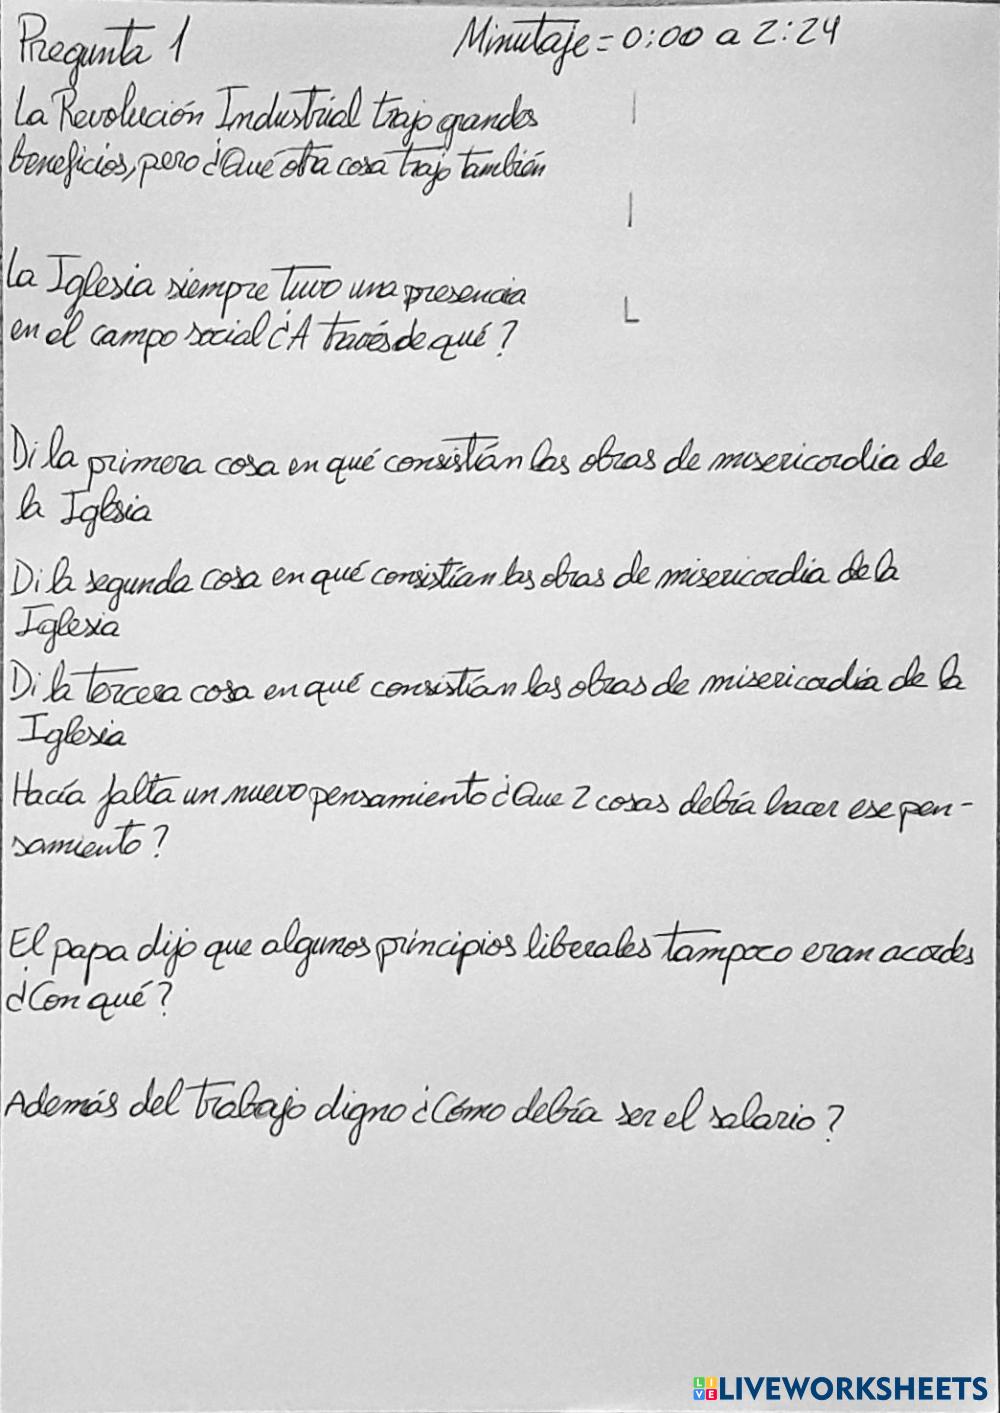 Pregunta 1 Minutaje = 0:00 a 2:24
La Revolución Industrial trajo grandes
beneficios, pero ¿Qué otra cosa trajo también
La Iglesia siempre tuvo una presencia
en el campo social ¿A través de qué?
Di la primera cosa en qué consistían las obras de misericordia de
la Iglesia
Di la segunda cosa en qué consistían las obras de misericordia de la
Iglesia
Di la tercera cosa en qué consistían las obras de misericordia de la
Iglesia
Hacía falta un nuevo pensamiento ¿Que 2 cosas debía hacer ese pen-
samiento?
El papa dijo que algunos principios liberales tampoco eran acordes
¿Con qué?
Además del trabajo digno ¿Cómo debía ser el salario?
LIVEWORKSHEETS